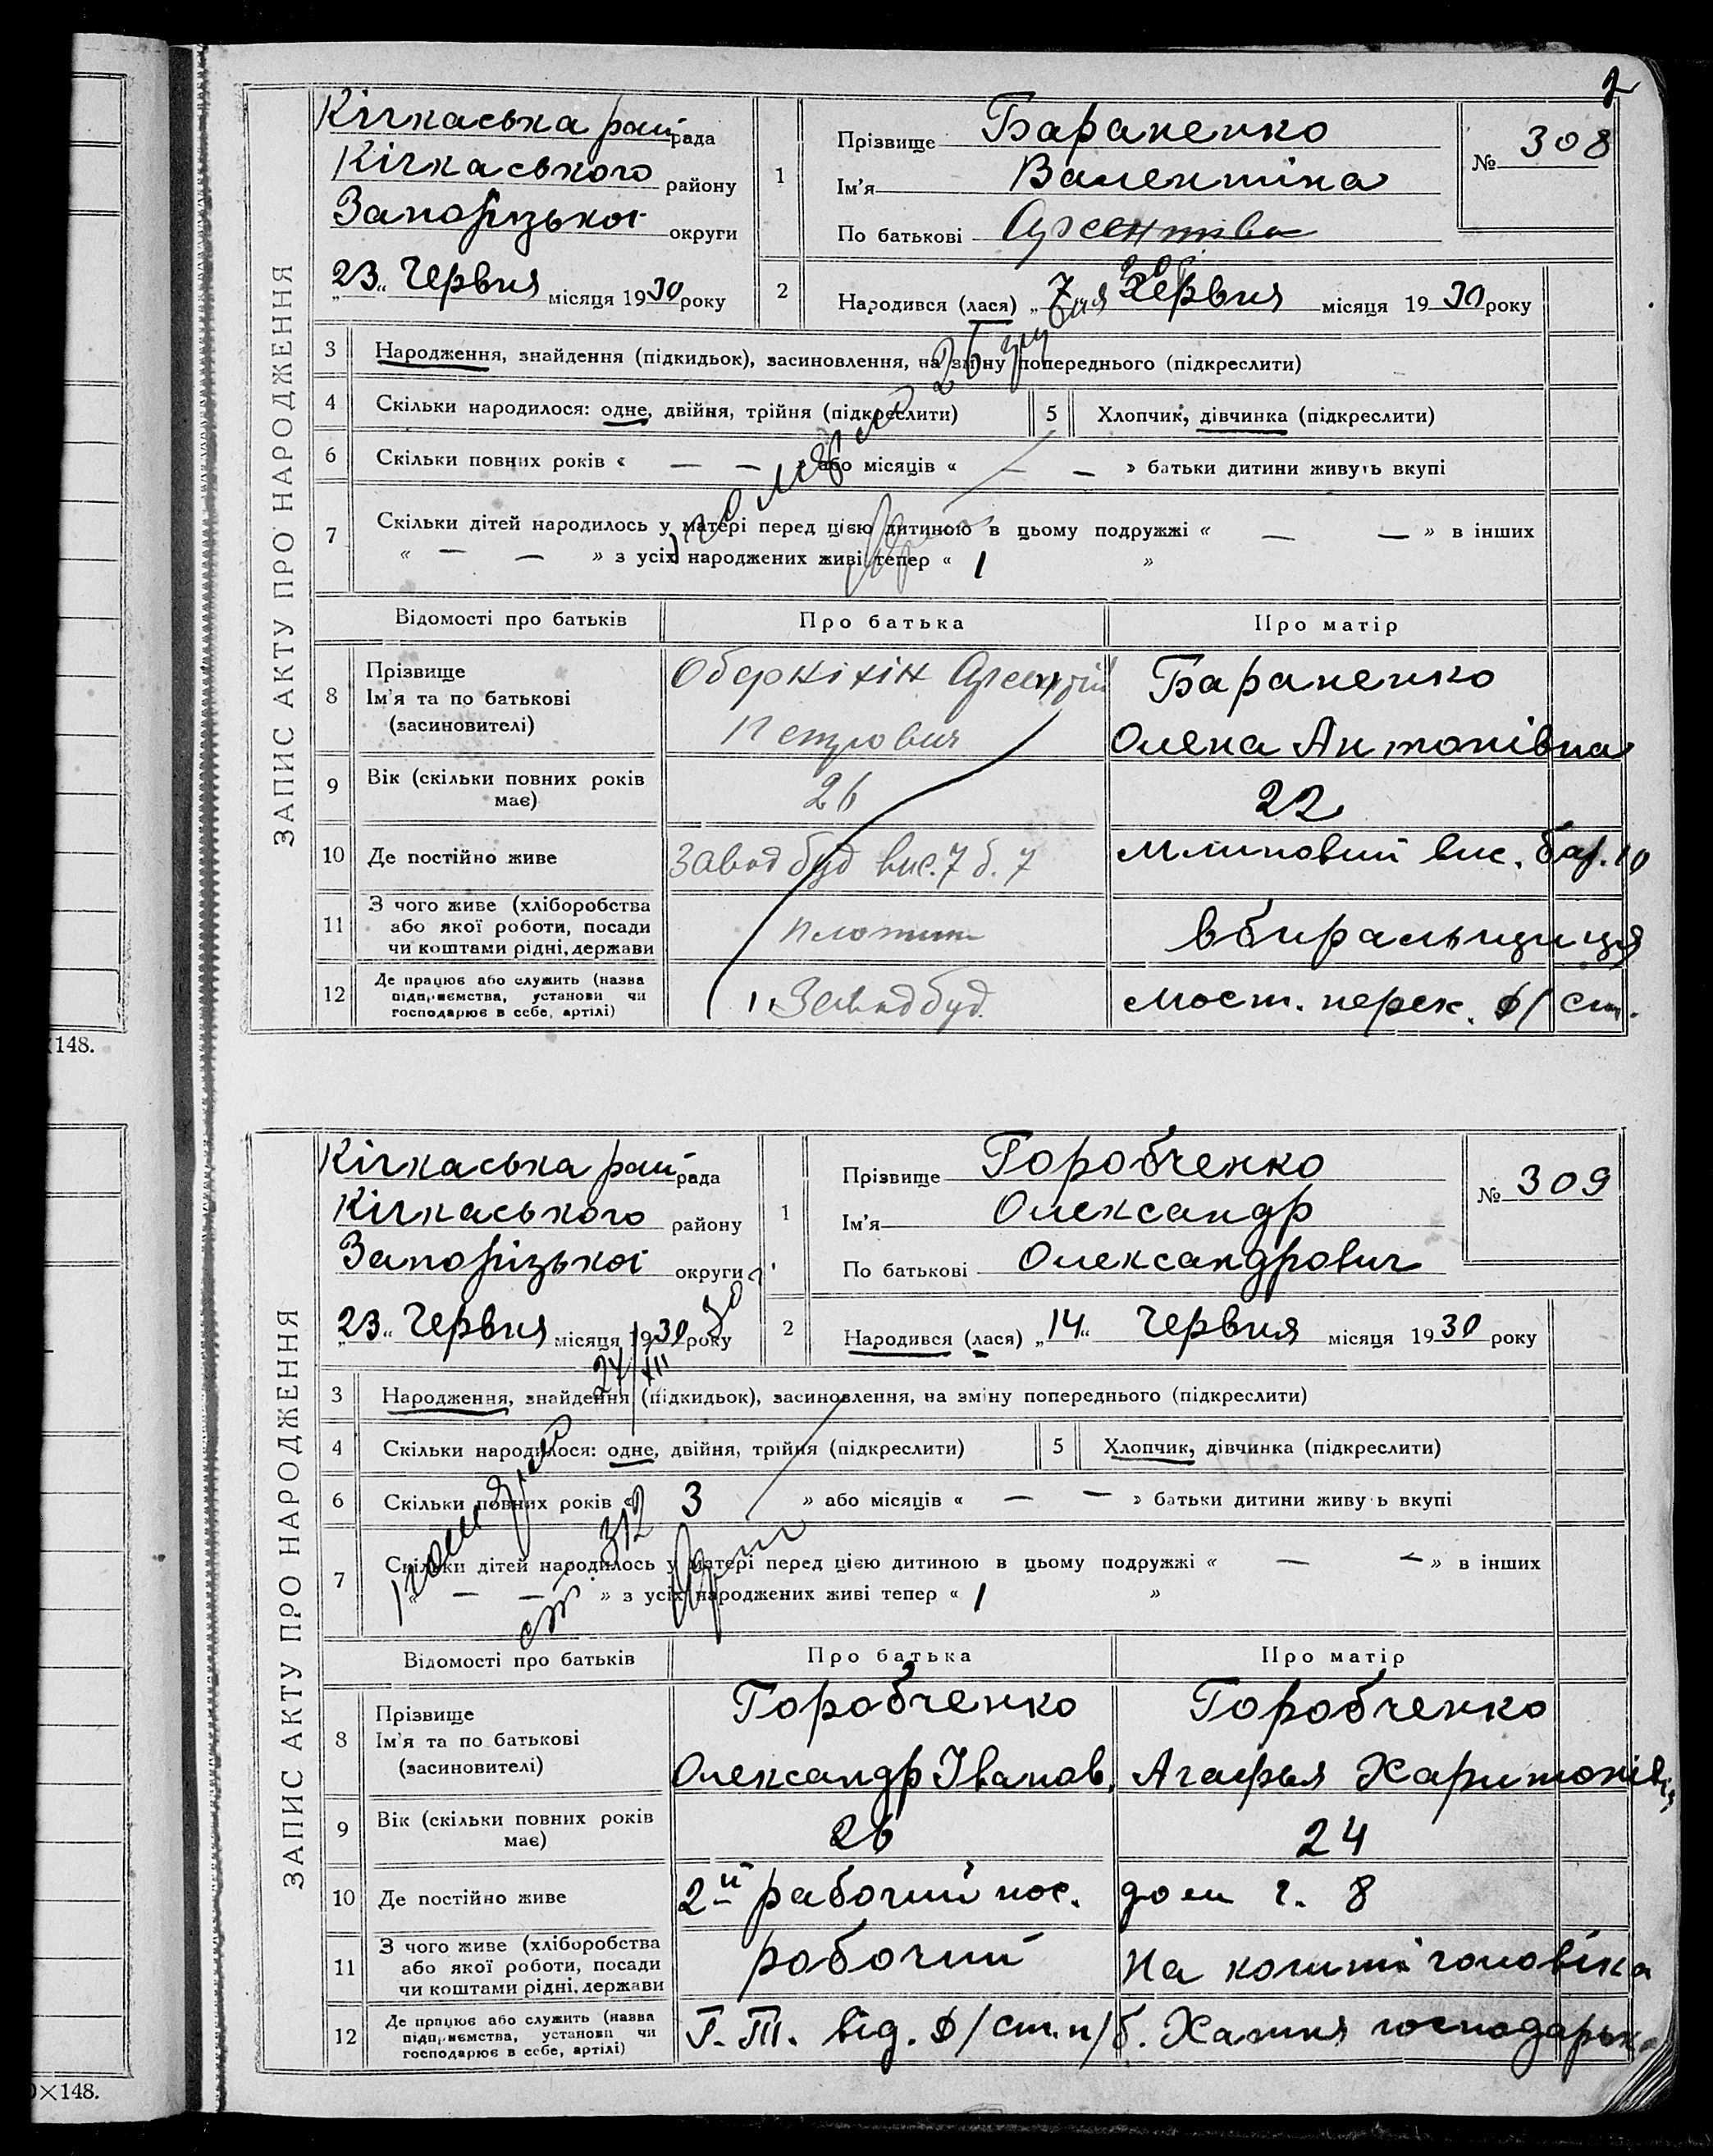 2
ЗАПИС АКТУ ПРО НАРОДЖЕННЯ
Кічкаська рай рада
Кічкаського району
Запорізької округи
„23„ Червня місяця 1930 року
1
Прізвище Бараненко
Ім'я Валентина
По батькові
№ 308
2
Народився (лася) „7 Червня місяця 1930 року
3 Народження, знайдення (підкидьок), засиновлення, на зміну попереднього (підкреслити)
4 Скільки народилося: одне, двійня, трійня (підкреслити)
5 Хлопчик, дівчинка (підкреслити)
6 Скільки повних років « — — » або місяців « — — » батьки дитини живуть вкупі
7 Скільки дітей народилось у матері перед цією дитиною в цьому подружжі « — — » в інших
« — — » з усіх народжених живі тепер « 1 »
Відомості про батьків
Про батька
Про матір
8 Прізвище
Ім'я та по батькові
(засиновителі)
Петрович
Бараненко
Олена Антонівна
9 Вік (скільки повних років має)
26
22
10 Де постійно живе
Завод буд вис. 7 б. 7
Млиновий вис. бар. 10
11 З чого живе (хліборобства
або якої роботи, посади
чи коштами рідні, держави
плотник
вбиральщиця
12 Де працює або служить (назва
підприємства, установи чи
господарює в себе, артілі)
Заводбуд.
мост. перех. Д/ст.
×148.
ЗАПИС АКТУ ПРО НАРОДЖЕННЯ
Кічкаська рай рада
Кічкаського району
Запорізької округи
„23„ Червня місяця 1930 року
1
Прізвище Горобченко
Ім'я Олександр
По батькові Олександрович
№ 309
2
Народився (лася) „14„ Червня місяця 1930 року
24/XII 30
3 Народження, знайдення (підкидьок), засиновлення, на зміну попереднього (підкреслити)
4 Скільки народилося: одне, двійня, трійня (підкреслити)
5 Хлопчик, дівчинка (підкреслити)
6 Скільки повних років « 3 » або місяців « — — » батьки дитини живуть вкупі
312
7 Скільки дітей народилось у матері перед цією дитиною в цьому подружжі « — — » в інших
« — — » з усіх народжених живі тепер « 1 »
Відомості про батьків
Про батька
Про матір
8 Прізвище
Ім'я та по батькові
(засиновителі)
Горобченко
Олександр Іванов.
Горобченко
Агафья Харитонівн
9 Вік (скільки повних років має)
26
24
10 Де постійно живе
2й рабочий пос.
дом ч. 8
11 З чого живе (хліборобства
або якої роботи, посади
чи коштами рідні, держави
робочий
На кошти чоловіка
12 Де працює або служить (назва
підприємства, установи чи
господарює в себе, артілі)
Г. Т. від. Д/ст. п/б.
Хатня господарьк.
×148.